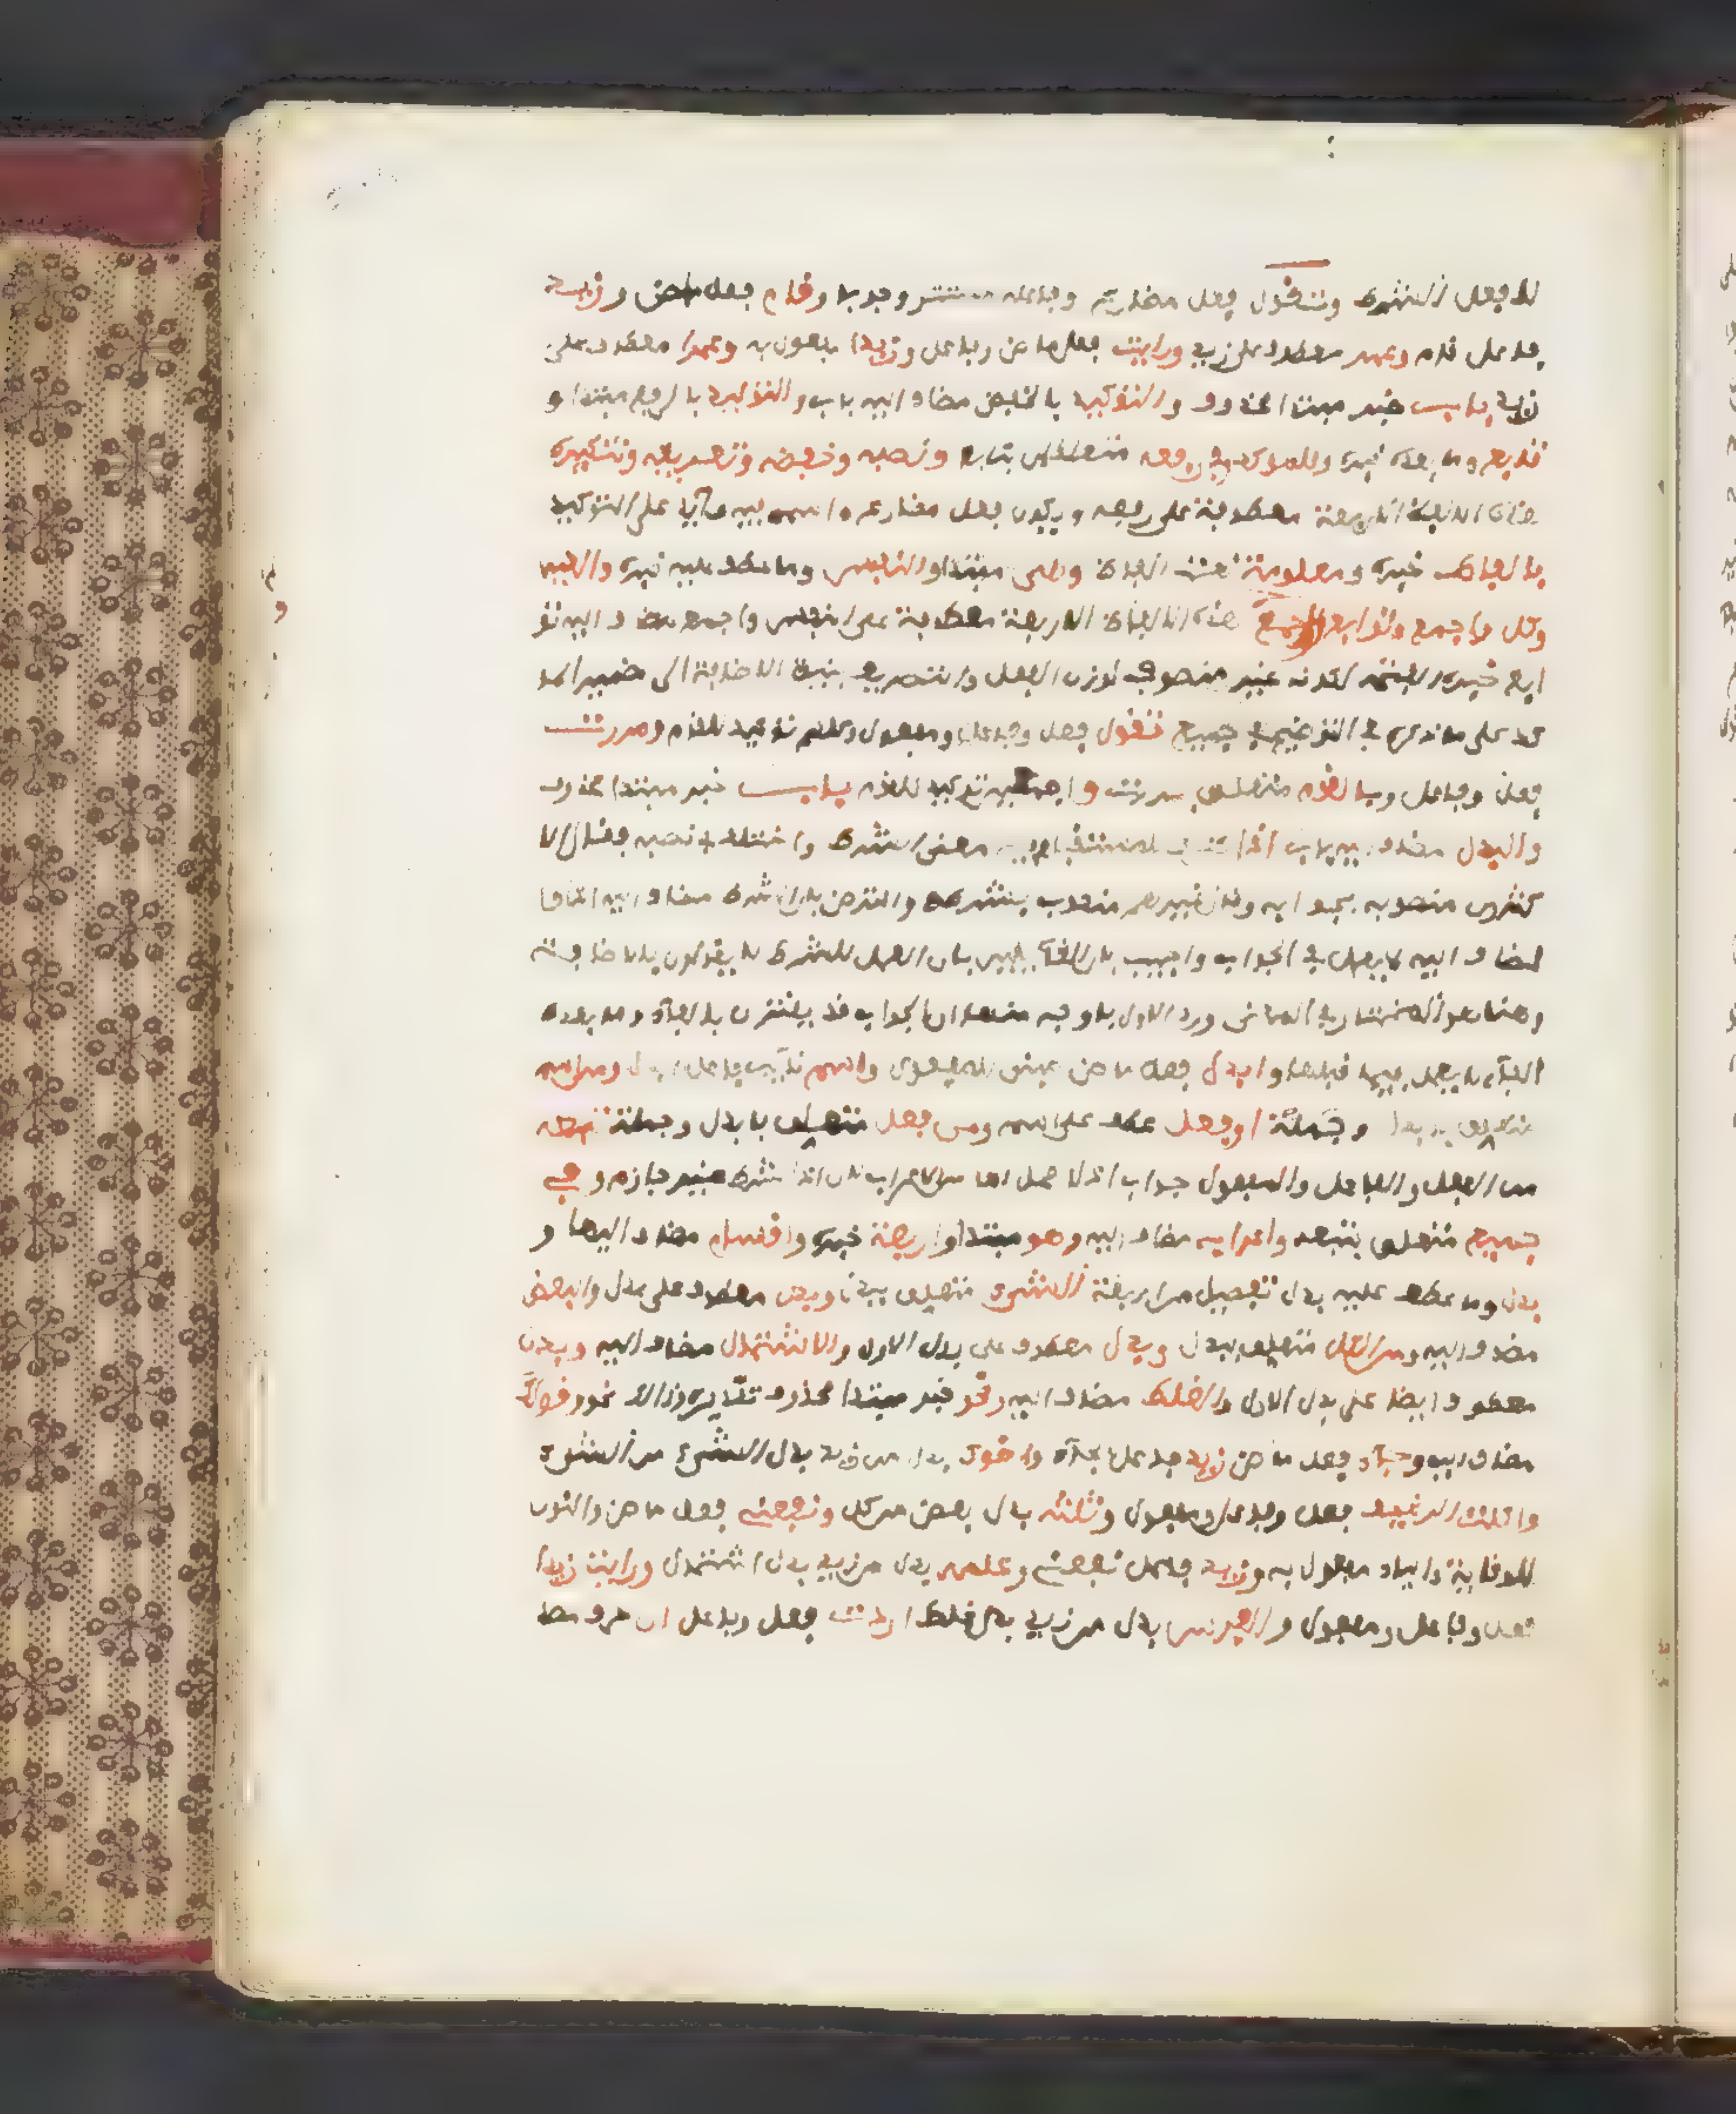 لا فعل الشرط وتقول فعل مضارع وفاعله مستتر وجوبا وقام فعل ماض وزيد
فاعل قام وعمر معطوف على زيد ورايت فعل ماض وفاعل وزيدا مفعول به وعمرا معطوف على
زيد باب خبر مبتدا محذوف والتوكيد بالخفض مضاف اليه باب والتوكيد بالرفع مبتدا و
تابع وما بعده خبره وللموكد في رفعه متعلقان بتابع ونصبه وخفضه وتعريفه وتنكيره
هذه الالفاظ الاربعة معطوفة على رفعه ويكون فعل مضارع واسمه فيه عائد على التوكيد
بالفاظ خبره ومعلومة نعت الفاظ وهي مبتدا والنفس وما عطف عليه خبره والعين
وكل واجمع وتوابع اجمع هذه الالفاظ الاربعة معطوفة على النفس واجمع مضاف اليه تو
ابع خبره الفتحة لكونه غير منصرف لوزن الفعل والتعريف بنية الاضافة الى ضمير المو
كد على ما ذكره في التوضيح في جميع تقول فعل وفاعل ومفعول وكلهم توكيد للقوم ومررت
فعل وفاعل وبالقوم متعلق بمررت واجمعين توكيد للقوم باب خبر مبتدا محذوف
والبدل مضاف اليه باب اذا للمستقبل فيه معنى الشرط واختلف نصبه فقال الا
كثرون منصوبه بجوابه وقال غيرهم منصوب بشرطه واعترض بان الشرط مضاف اليه اذا وا
لمضاف اليه لا يعمل في المضاف واجيب بان القائلين بان العمل للشرط لا يقولون بالاضافة
وهذا هو المختار في المغني ورد الاول باوجه منها ان الجواب قد يقترن بالفاء وما بعد
الفاء لا يعمل فيما قبلها وابدل فعل ماض مبني للمفعول واسم نائب فاعل ابدل ومن اسم
متعلق بابدل وجملة او فعل عطف على اسم ومن فعل متعلق بابدل وجملة تبعه
من الفعل والفاعل والمفعول جواب اذا لا محل لها من الاعراب لان اذا شرط غير جازم وفي
جميع متعلق بتبعه واعرابه مضاف اليه وهو مبتدا واربعة خبره واقسام مضاف اليها و
بدل وما عطف عليه بدل تفصيل من اربعة الشيء متعلق ببدل وبدل معطوف على بدل والبعض
مضاف اليه ومن الكل متعلق ببدل وبدل معطوف على بدل الاول والاشتمال مضاف اليه وبدل
معطوف ايضا على بدل الاول والغلط مضاف اليه ونحو خبر مبتدا محذوف تقديره وذالك نحو وقولك
مضاف اليه وجاء فعل ماض زيد فاعل بجاء واخوك بدل من زيد بدل الشيء من الشيء
واكلت الرغيف فعل وفاعل ومفعول وثلثه بدل بعض من كل ونفعني فعل ماض والنون
للوقاية والياء مفعول به وزيد فاعل نفعني وعلمه بدل من زيد بدل اشتمال ورايت زيدا
فعل وفاعل ومفعول والفرس بدل من زيد بدل غلط اردت فعل وفاعل ان حرف مصد